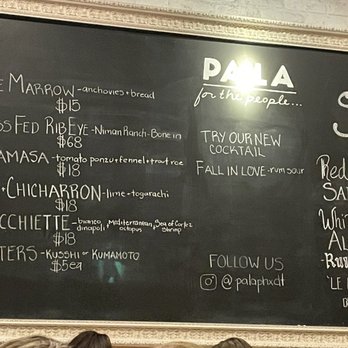 E MARROW-anchovies+bread
$15
SS FED RIBEYE-Niman Ranch-Bone in
$68
AMASA-tomato ponzu+fennel+trout roe
$18
+CHICHARRON-lime+togarachi
$18
CCHIETTE-bianco dinapoli, Mediterranean octopus, Sea of Cortez Shrimp
$18
TERS-KUSSHI or KUMAMOTO
$5ea
PALA
for the people...
TRY OUR NEW
COCKTAIL
FALL IN LOVE-rum sour
FOLLOW US
@palaphxdt
S
Red
SA
Whi
AL
'LE